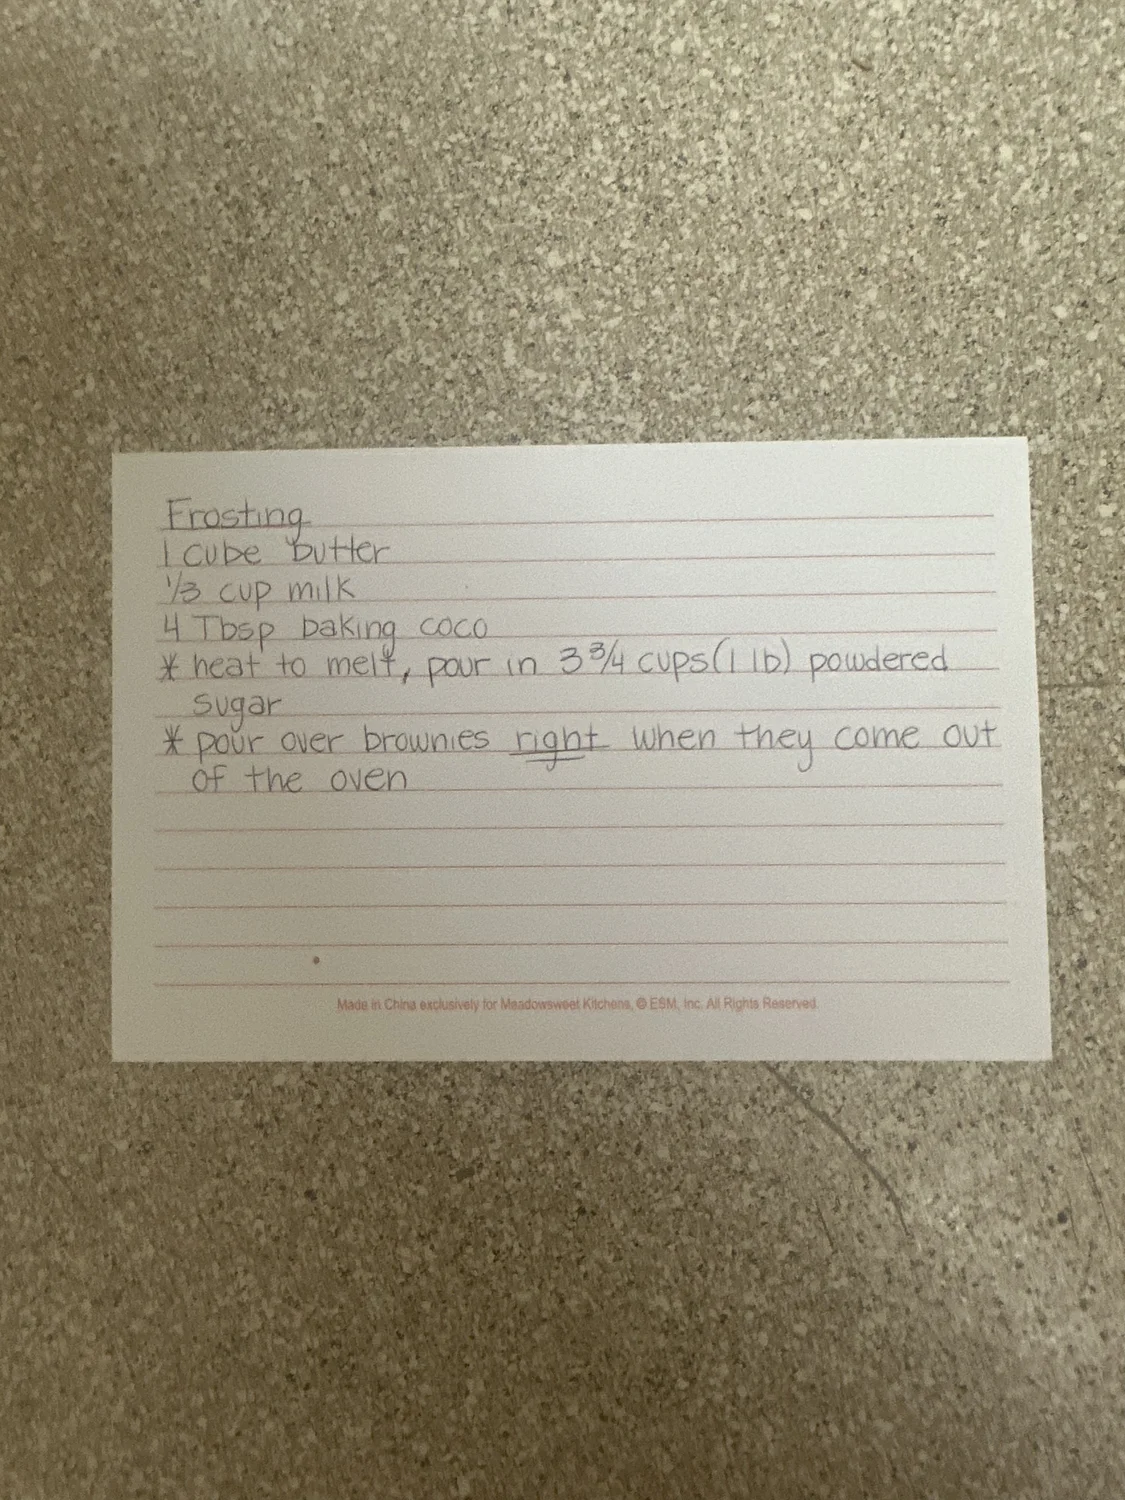 Frosting
1 cube butter
1/3 cup milk
4 Tbsp baking coco
* heat to melt, pour in 3 3/4 cups (1 lb) powdered
sugar
* pour over brownies right when they come out
of the oven
Made in China exclusively for Meadowsweet Kitchens, © ESM, Inc. All Rights Reserved.